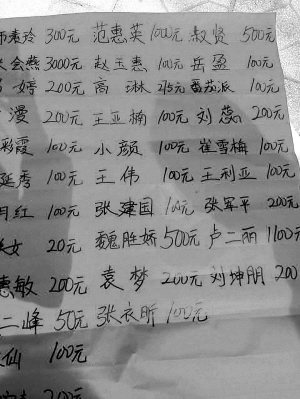 素玲 300元 范惠英 100元 叔贤 500元
会燕 3000元 赵玉惠 100元 岳盈 100元
婷 200元 高琳 215元 番茄派 100元
漫 200元 王亚楠 100元 刘蕊 200元
彩霞 100元 小颜 100元 崔雪梅 100元
延秀 100元 王伟 100元 王利亚 100元
月红 100元 张建国 100元 张军平 200元
女 20元 魏胜娇 500元 卢二丽 1100元
惠敏 200元 袁梦 200元 刘坤朋 200
二峰 50元 张衣昕 100元
仙 100元
200元